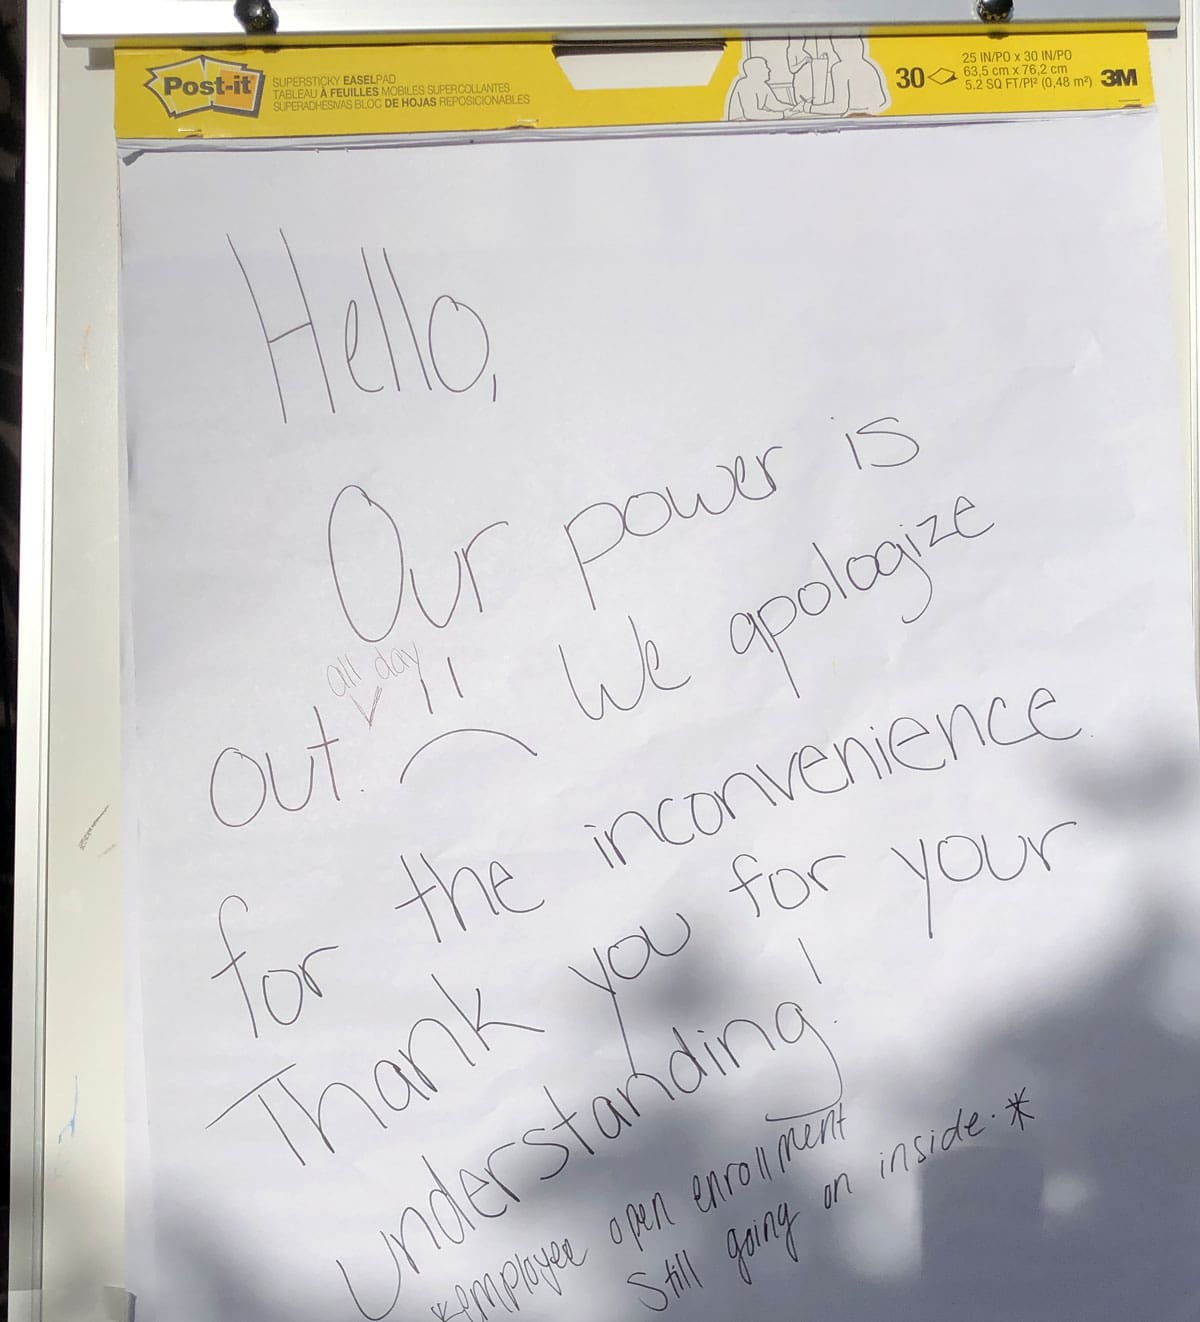 Post-it
SUPERSTICKY EASELPAD
TABLEAU À FEUILLES MOBILES SUPERCOLLANTES
SUPERADHESIVAS BLOC DE HOJAS REPOSICIONABLES
30
25 IN/PO x 30 IN/PO
63,5 cm x 76,2 cm
5.2 SQ FT/PI² (0,48 m²)
3M
Hello,
Our power is
all day
out. :( We apologize
for the inconvenience.
Thank you for your
understanding!
*employee open enrollment
Still going on inside.*